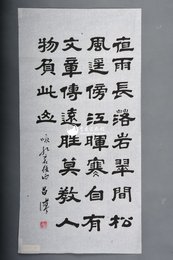 夜雨長落岩翠間松
風遥傍江暉寒自有
文章傳遠勝莫教人
物負此山